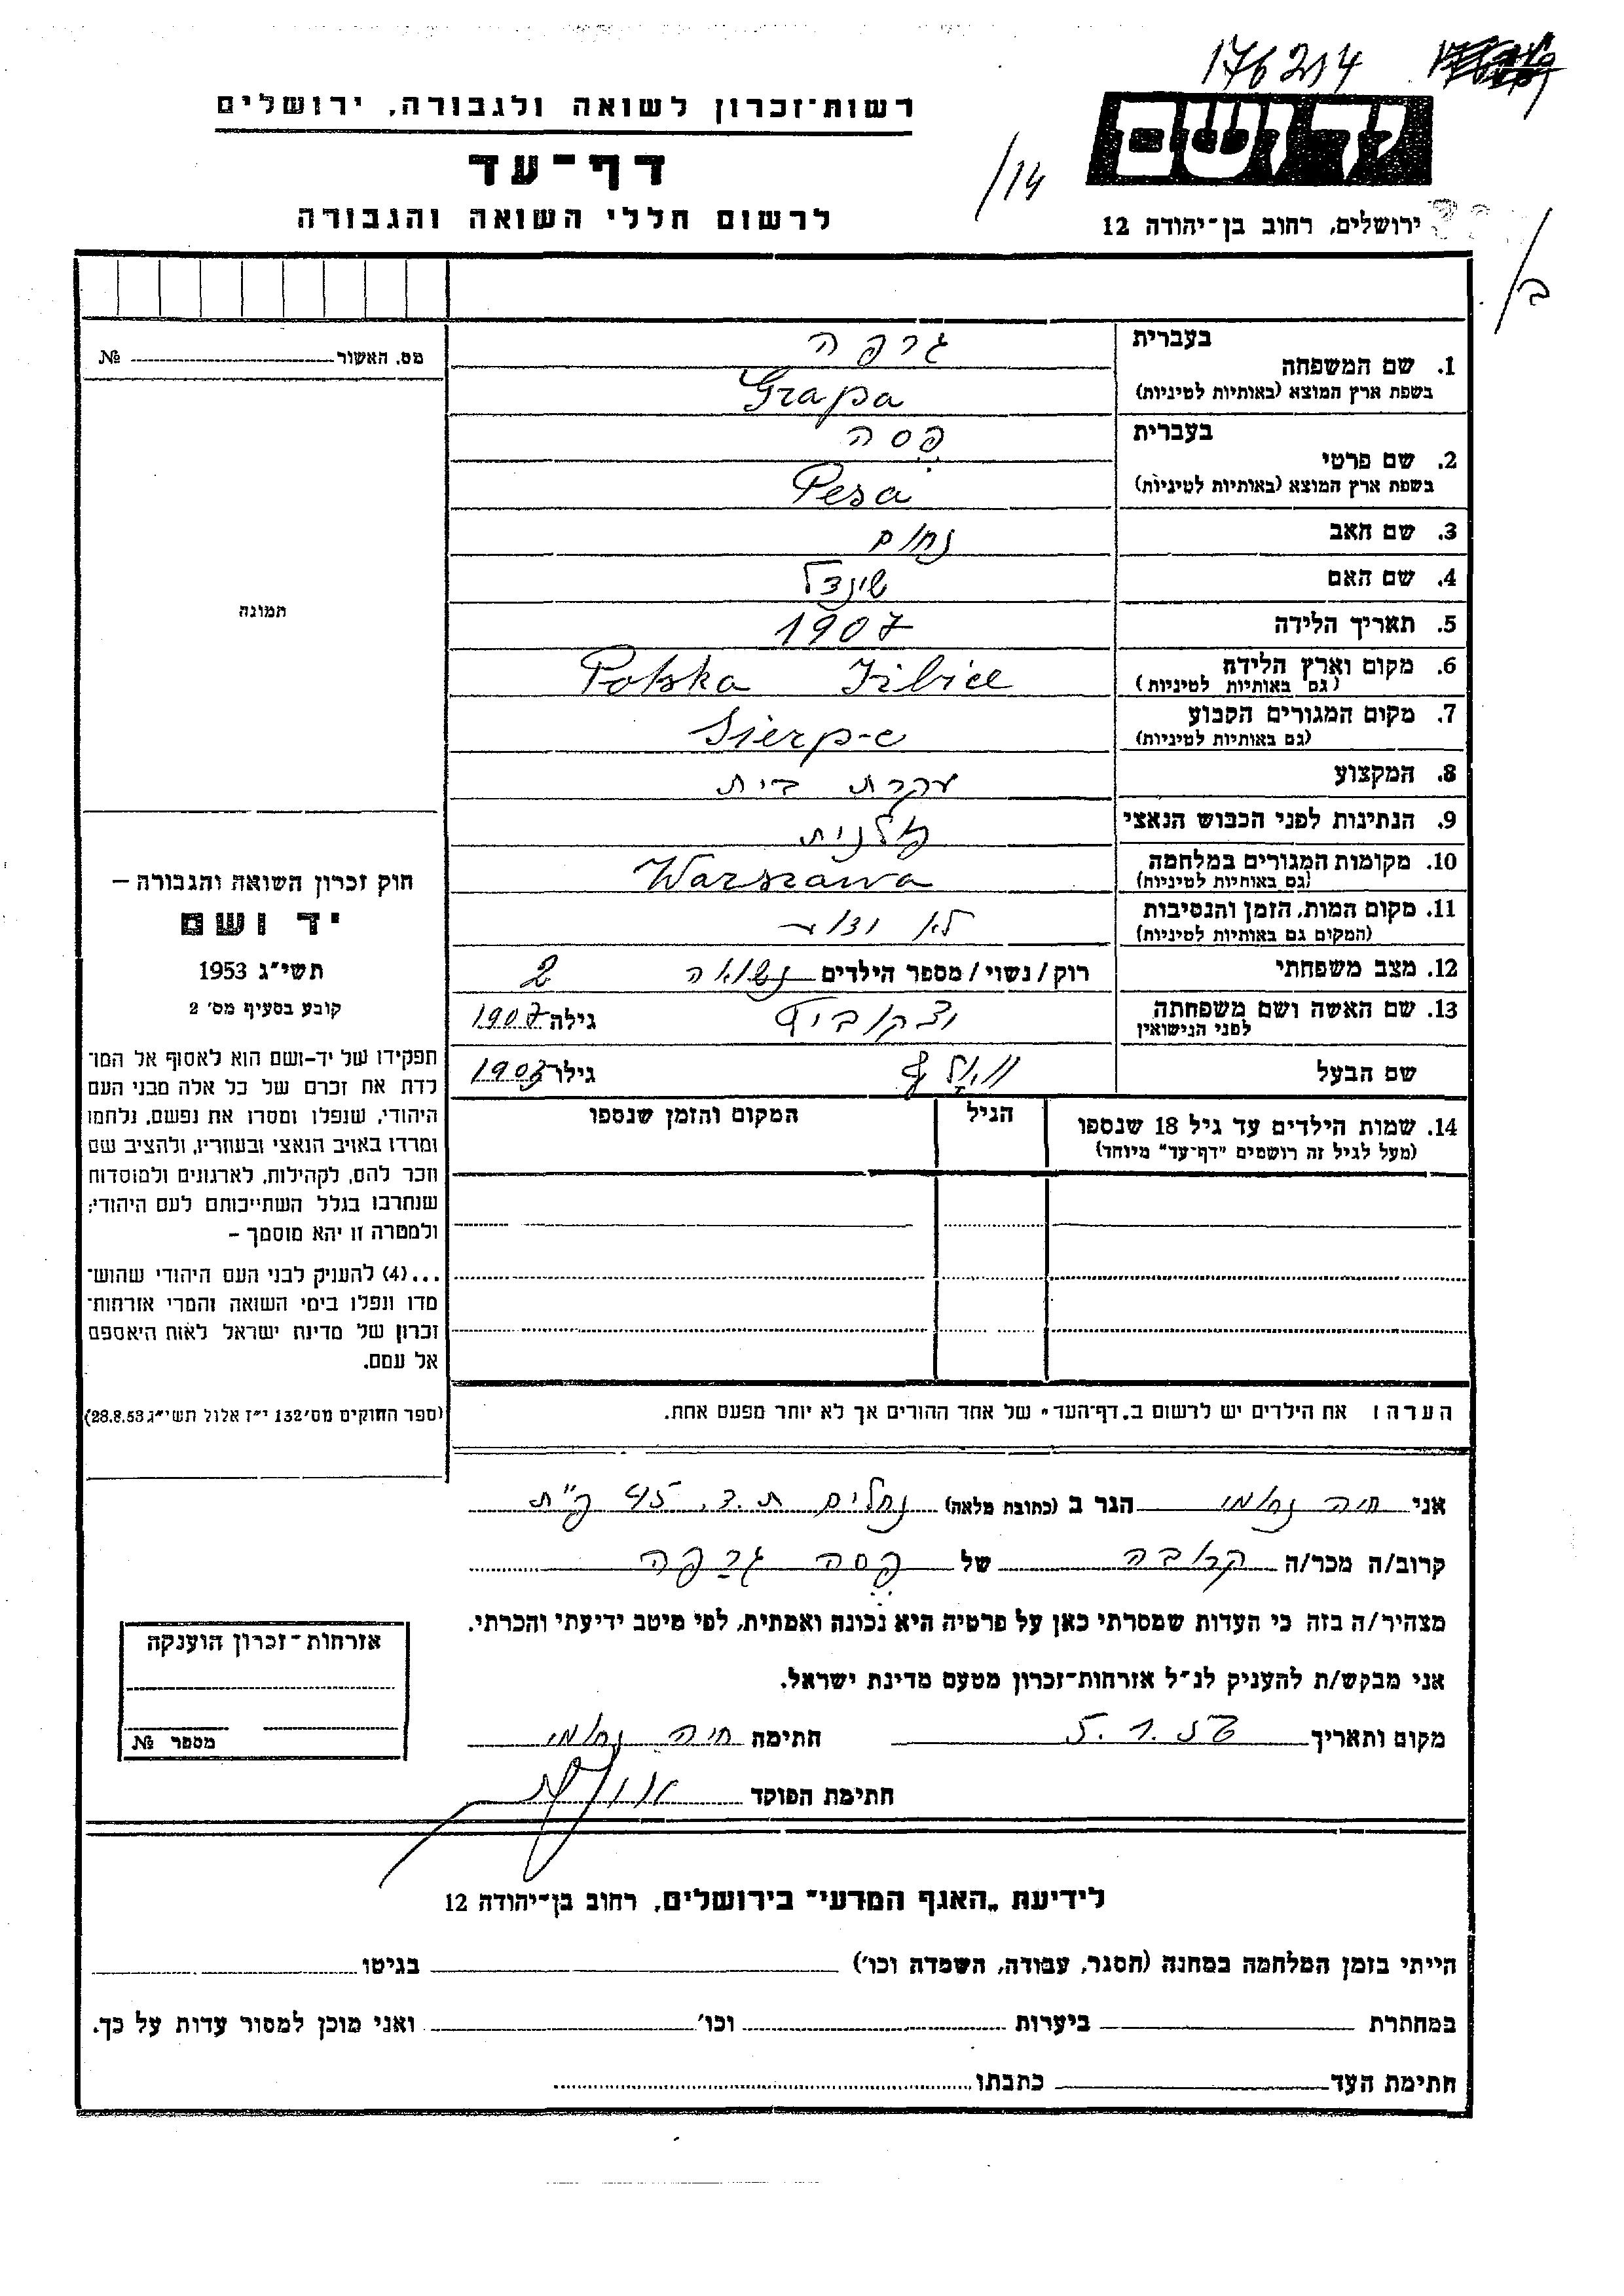 176214
רשות־זכרון לשואה ולגבורה, ירושלים
דף־עד
לרשום חללי השואה והגבורה
/14
יד ושם
ירושלים, רחוב בן־יהודה 12
ב/
מס. האשור № 
בעברית
1. שם המשפחה
בשפת ארץ המוצא (באותיות לטיניות)
גרפה
Grapa
בעברית
2. שם פרטי
בשפת ארץ המוצא (באותיות לטיניות)
פסה
Pesa
3. שם האב נחום
4. שם האם שינדל
5. תאריך הלידה 1907
6. מקום וארץ הלידה
(גם באותיות לטיניות)
Polska
7. מקום המגורים הקבוע
(גם באותיות לטיניות)
Sierpc
8. המקצוע עקרת בית
9. הנתינות לפני הכבוש הנאצי פולנית
10. מקומות המגורים במלחמה
(גם באותיות לטיניות)
Warszawa
11. מקום המות, הזמן והנסיבות
(המקום גם באותיות לטיניות)
לא ידוע
12. מצב משפחתי רוק/נשוי/מספר הילדים נשואה 2
13. שם האשה ושם משפחתה
לפני הנישואין
גילה 1907
שם הבעל גילו
14. שמות הילדים עד גיל 18 שנספו
(מעל לגיל זה רושמים "דף־עד" מיוחד)
הגיל
המקום והזמן שנספו
תמונה
חוק זכרון השואה והגבורה –
יד ושם
תשי״ג 1953
קובע בסעיף מס׳ 2
תפקידו של יד–ושם הוא לאסוף אל המו־
לדת את זכרם של כל אלה מבני העם
היהודי, שנפלו ומסרו את נפשם, נלחמו
ומרדו באויב הנאצי ובעוזריו, ולהציב שם
וזכר להם, לקהילות, לארגונים ולמוסדות
שנחרבו בגלל השתייכותם לעם היהודי;
ולמטרה זו יהא מוסמך –
...(4) להעניק לבני העם היהודי שהוש־
מדו ונפלו בימי השואה והמרי אזרחות־
זכרון של מדינת ישראל לאות היאספם
אל עמם.
(ספר החוקים מס׳ 132 י״ז אלול תשי״ג 28.8.53)
הערה: את הילדים יש לרשום ב„דף־העד" של אחד ההורים אך לא יותר מפעם אחת.
אני חיה נחומי הגר ב (כתובת מלאה) נחלים ת.ד. 45 פ״ת
קרוב/ה מכר/ה קרובה של פסה גרפה
מצהיר/ה בזה כי העדות שמסרתי כאן על פרטיה היא נכונה ואמתית, לפי מיטב ידיעתי והכרתי.
אני מבקש/ת להעניק לנ״ל אזרחות־זכרון מטעם מדינת ישראל.
מקום ותאריך 5.1.58 חתימה חיה נחומי
חתימת הפוקד
אזרחות־זכרון הוענקה
מספר №
לידיעת „האגף המדעי" בירושלים, רחוב בן־יהודה 12
הייתי בזמן המלחמה במחנה (הסגר, עבודה, השמדה וכו׳) בגיטו
במחתרת ביערות וכו׳ ואני מוכן למסור עדות על כך.
חתימת העד כתבתו